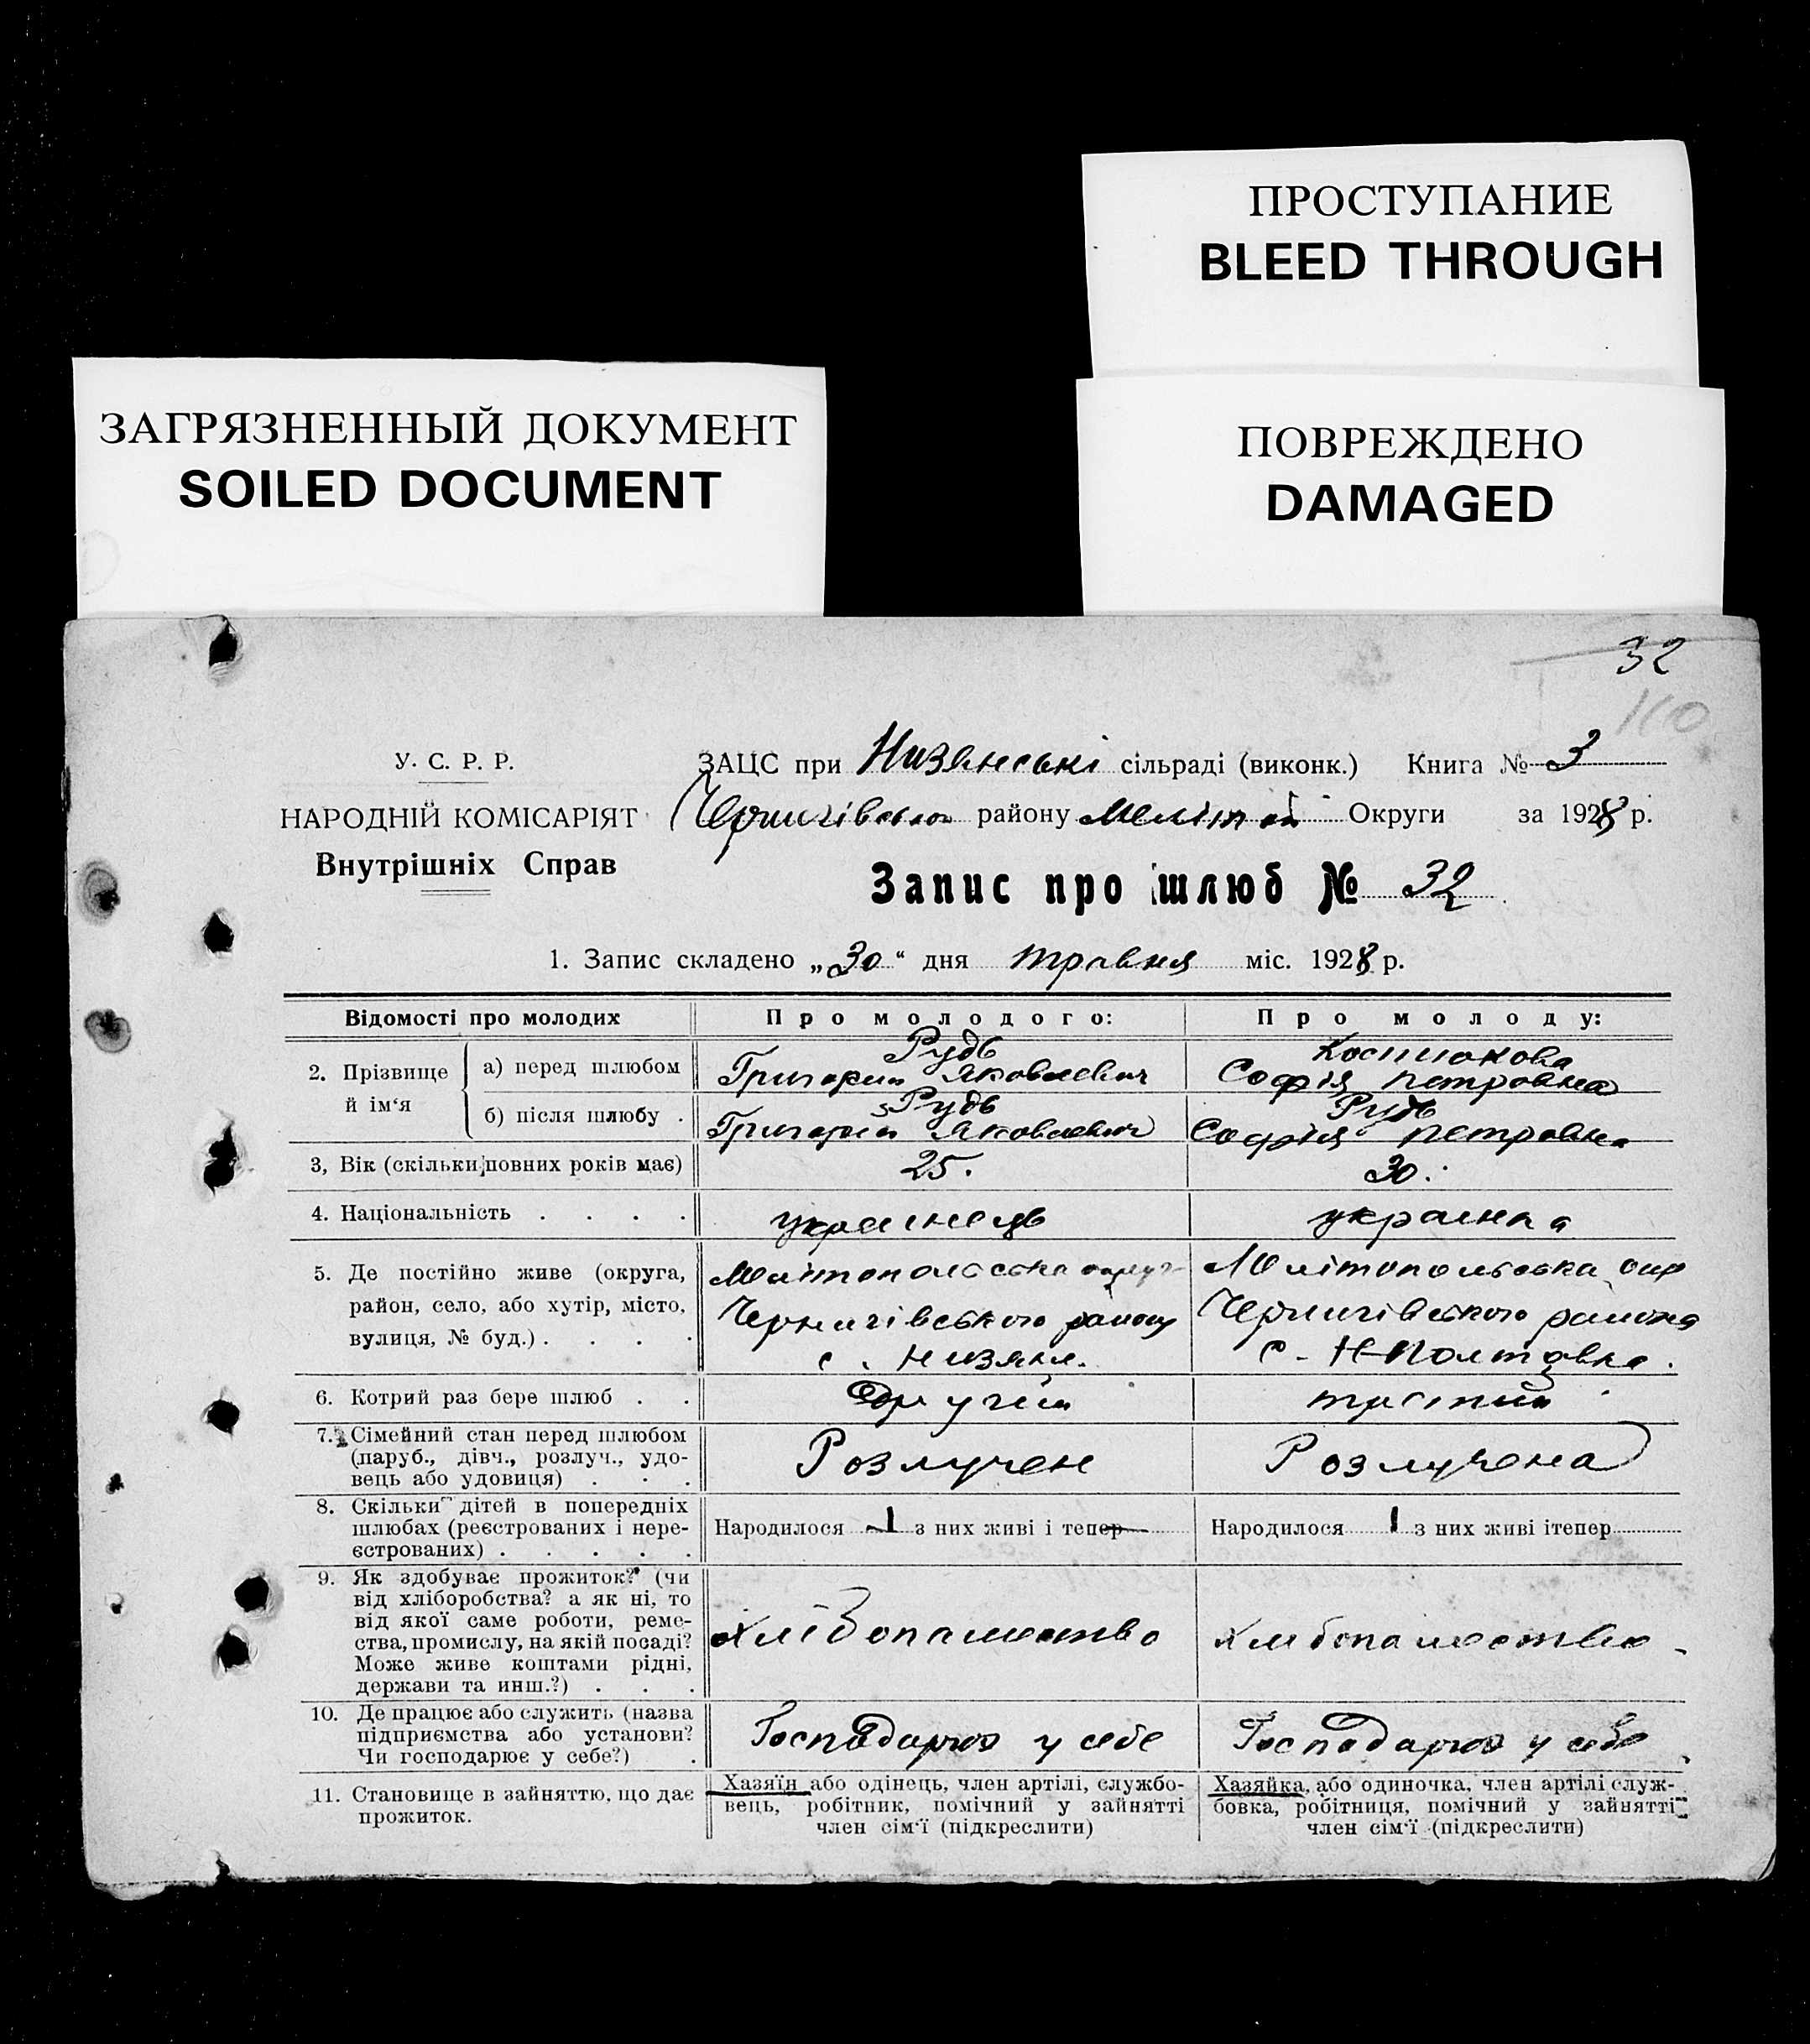 ПРОСТУПАНИЕ
BLEED THROUGH
ЗАГРЯЗНЕННЫЙ ДОКУМЕНТ
SOILED DOCUMENT
ПОВРЕЖДЕНО
DAMAGED
32
110
У. С. Р. Р.
ЗАЦС при Низянські сільраді (виконк.) Книга № 3
НАРОДНІЙ КОМІСАРІЯТ
Чернигівського району Меліт ой Округи за 1928 р.
Внутрішніх Справ
Запис про шлюб № 32
1. Запис складено „30“ дня травня міс. 1928 р.
Відомості про молодих
Про молодого:
Про молоду:
2. Прізвище й ім‘я
а) перед шлюбом
Рудь
Григорий Яковлевич
Софія Петровна
б) після шлюбу .
Рудь
Григорий Яковлевич
Рудь
Софія Петровна
3, Вік (скільки повних років має)
25.
30.
4. Національність . . . .
українець
украінка
5. Де постійно живе (округа,
район, село, або хутір, місто,
вулиця, № буд.) . . . .
Мелітопольська округ
Чернигівського району
с. Низяни.
Мелітопольська окр
Чернигівського района
с. Н-Полтавка.
6. Котрий раз бере шлюб . .
Другий
третий
7. Сімейний стан перед шлюбом
(паруб., дівч., розлуч., удо-
вець або удовиця) . . .
Розлучен
Розлучена
8. Скільки дітей в попередніх
шлюбах (реєстрованих і нере-
єстрованих) . . . . .
Народилося 1 з них живі і тепер —
Народилося 1 з них живі ітепер
9. Як здобуває прожиток? (чи
від хліборобства? а як ні, то
від якої саме роботи, реме-
ства, промислу, на якій посаді?
Може живе коштами рідні,
держави та инш.?) . . .
хлібопашество
хлибопашество
10. Де працює або служить (назва
підприємства або установи?
Чи господарює у себе?) .
Господарює у себе
Господарює у себе
11. Становище в зайняттю, що дає
прожиток.
Хазяїн або одінець, член артілі, службо-
вець, робітник, помічний у зайнятті
член сім‘ї (підкреслити)
Хазяйка, або одиночка, член артілі служ-
бовка, робітниця, помічний у зайнятті
член сім‘ї (підкреслити)